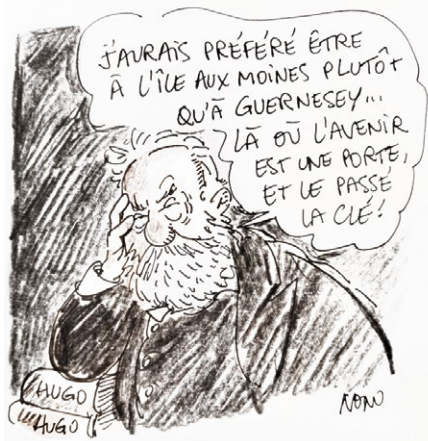 J'AURAIS PRÉFÉRÉ ÊTRE
À L'ÎLE AUX MOINES PLUTÔT
QU'À GUERNESEY...
LÀ OÙ L'AVENIR
EST UNE PORTE,
ET LE PASSÉ
LA CLÉ!
HUGO
HUGO
NONO